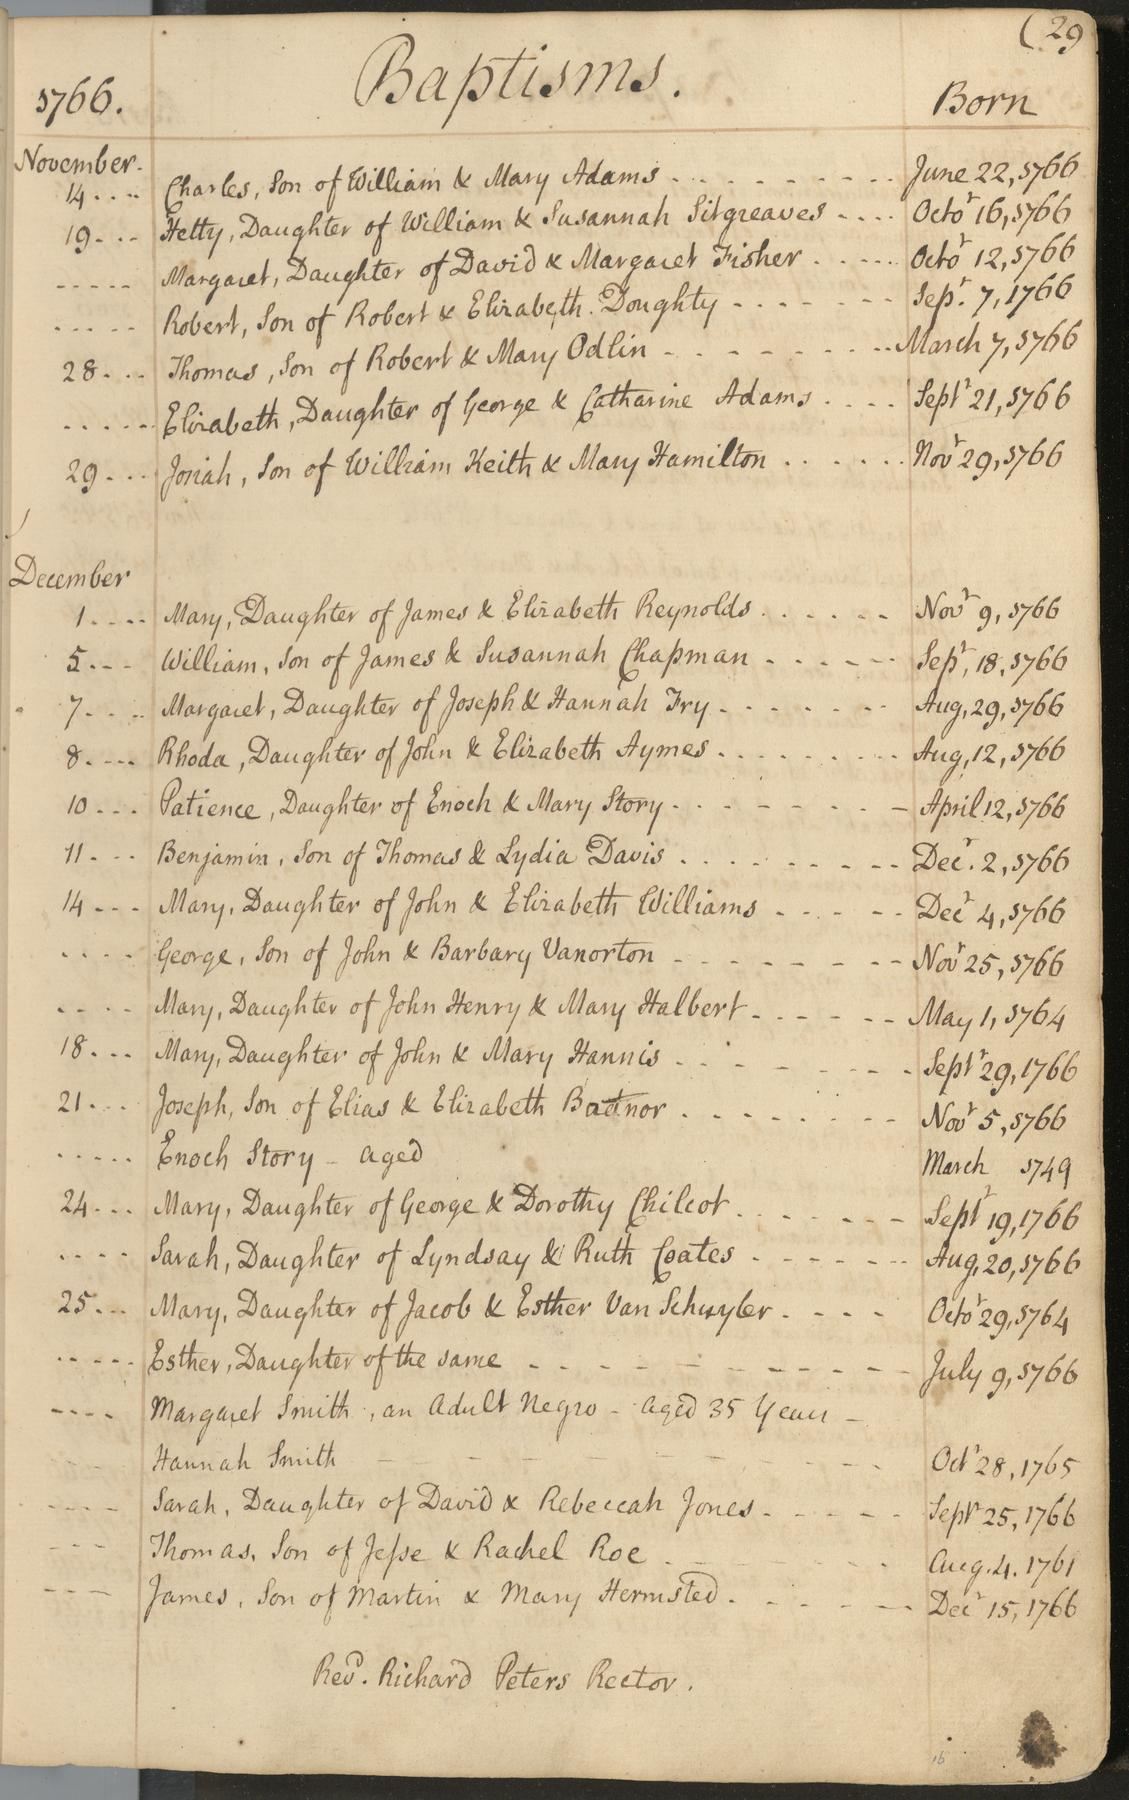 (29
1766. Baptisms. Born
November.
14 .... Charles, Son of William & Mary Adams .......... June 22, 1766
19 ... Hetty, Daughter of William & Susannah Sitgreaves .... Octor 16, 1766
..... Margaret, Daughter of David & Margaret Fisher ..... Octor 12, 1766
..... Robert, Son of Robert & Elizabeth Doughty ....... Sepr. 7, 1766
28 ... Thomas, Son of Robert & Mary Odlin ......... March 7, 1766
..... Elizabeth, Daughter of George & Catharine Adams .... Septr 21, 1766
29 ... Josiah, Son of William Keith & Mary Hamilton ...... Novr 29, 1766
December
1 .... Mary, Daughter of James & Elizabeth Reynolds ...... Novr 9, 1766
5 ... William, Son of James & Susannah Chapman ...... Sepr, 18, 1766
7 .... Margaret, Daughter of Joseph & Hannah Fry ....... Aug, 29, 1766
8 .... Rhoda, Daughter of John & Elizabeth Aymes ......... Aug, 12, 1766
10 ... Patience, Daughter of Enoch & Mary Story ......... April 12, 1766
11 ... Benjamin, Son of Thomas & Lydia Davis ......... Decr. 2, 1766
14 ... Mary, Daughter of John & Elizabeth Williams ..... Decr 4, 1766
.... George, Son of John & Barbary Vanorton ........ Novr 25, 1766
.... Mary, Daughter of John Henry & Mary Halbert ...... May 1, 1764
18 ... Mary, Daughter of John & Mary Hannis ........ Septr 29, 1766
21 ... Joseph, Son of Elias & Elizabeth ........ Novr 5, 1766
..... Enoch Story - aged March 1749
24 ... Mary, Daughter of George & Dorothy Chilcot ....... Septr 19, 1766
.... Sarah, Daughter of Lyndsay & Ruth Coates ...... Aug, 20, 1766
25 ... Mary, Daughter of Jacob & Esther Van Schuyler .... Octor 29, 1764
..... Esther, Daughter of the same ......... July 9, 1766
.... Margaret Smith, an Adult Negro - aged 35 Years -
Hannah Smith ........ Octr 28, 1765
.... Sarah, Daughter of David & Rebeccah Jones ..... Septr 25, 1766
... Thomas, Son of Jesse & Rachel Roe ....... Aug. 4. 1761
... James, Son of Martin & Mary Hermsted ...... Decr 15, 1766
Revd. Richard Peters Rector.
16